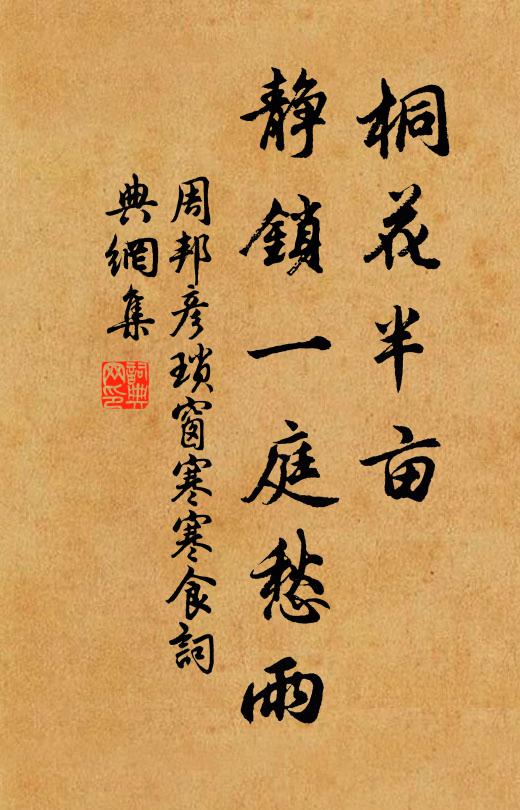 桐花半亩
静鎖一庭愁雨
周邦彦瑣窗寒寒食詞
典網集
詞典
网印